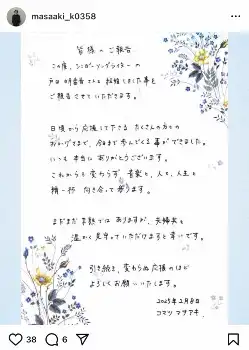 masaaki_k0358
皆様へご報告
この度、シンガーソングライターの
戸田 明香音さんと結婚しました事を
ご報告させていただきます。
日頃から応援して下さる たくさんの方々の
おかげさまで、今日まで歩んでくる事ができました。
いつも本当に ありがとうございます。
これからも変わらず、音楽と、人と、人生と
精一杯 向き合って参ります。
まだまだ未熟では ありますが、夫婦共々
温かく見守っていただけますと幸いです。
引き続き、変わらぬ応援のほど
よろしくお願いいたします。
2025年2月8日
コマツ マサアキ
38 6